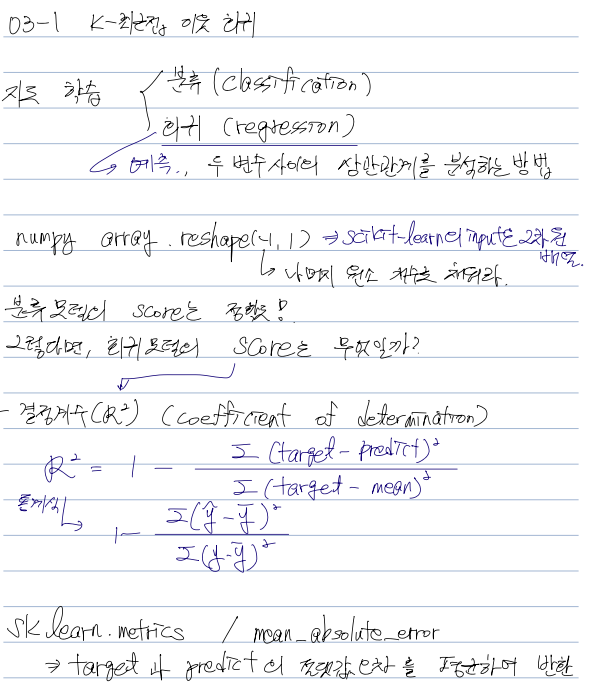 03-1 K-최근접 이웃 회귀
분류 (classification)
지도 학습
회귀 (regression)
↳ 예측., 두 변수 사이의 상관관계를 분석하는 방법
numpy array .reshape(-1, 1) ⇒ scikit-learn의 input은 2차원 배열.
↳ 나머지 원소 개수로 채워라.
분류모델의 score는 정확도!
그렇다면, 회귀모델의 score는 무엇일까?
- 결정계수(R²) (coefficient of determination)
R² = 1 - Σ (target - predict)² / Σ (target - mean)²
통계식 ↳ 1 - Σ(ŷ - ȳ)² / Σ(y - ȳ)²
sklearn.metrics / mean_absolute_error
⇒ target과 predict의 절댓값 오차를 평균하여 반환